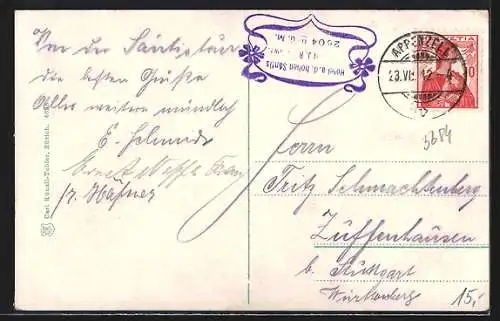 Von der Säntistour
die besten Grüße
Alles weitere mündlich
E. Schmidt
Ernst
Hotel a. d. hohen Säntis
2504 m ü. M.
APPENZELL
23.VII.12
HELVETIA
10
3684
Herrn
Fritz Schmachtenberg
Zuffenhausen
b. Stuttgart
Württemberg
15,-
Carl Künzli-Tobler, Zürich.